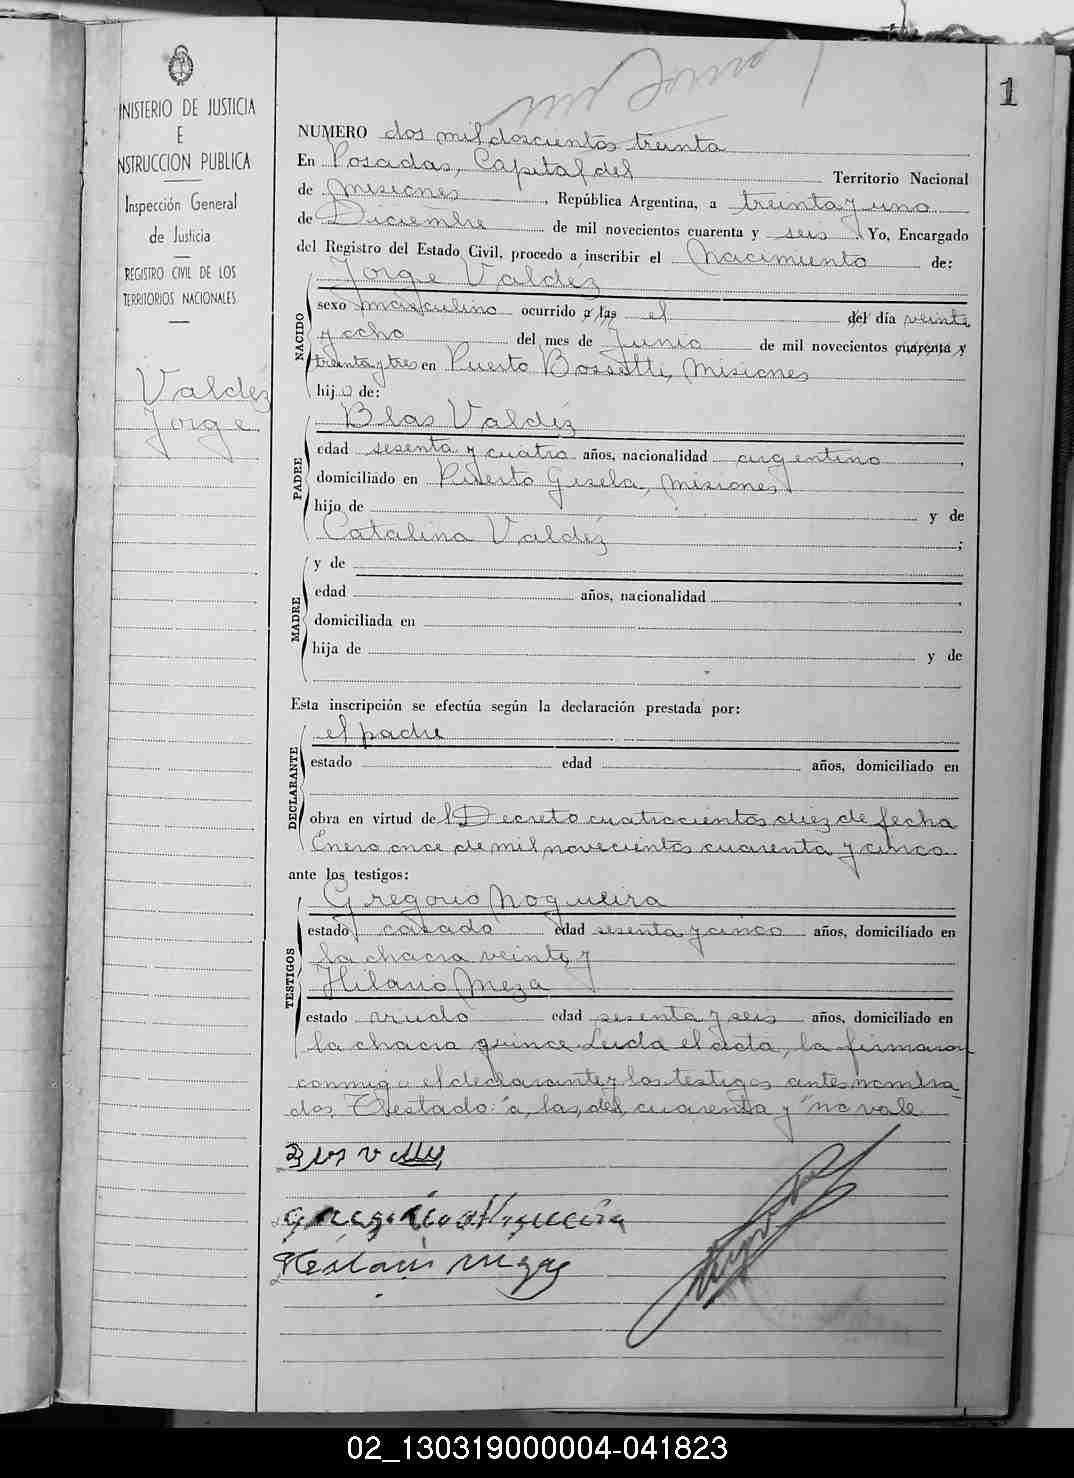 1
MINISTERIO DE JUSTICIA
E
INSTRUCCION PUBLICA
Inspección General
de Justicia
REGISTRO CIVIL DE LOS
TERRITORIOS NACIONALES
Valdéz
Jorge
NUMERO dos mil doscientos treinta
En Posadas, Capital del Territorio Nacional
de Misiones, República Argentina, a treinta y uno
de Diciembre de mil novecientos cuarenta y seis. Yo, Encargado
del Registro del Estado Civil, procedo a inscribir el Nacimiento de:
NACIDO
Jorge Valdéz
sexo masculino ocurrido a las el del día veinte
y ocho del mes de Junio de mil novecientos cuarenta y
treinta y tres en Puerto Bossetti, Misiones
hijo de:
PADRE
Blas Valdéz
edad sesenta y cuatro años, nacionalidad argentino,
domiciliado en Puerto Gisela, Misiones
hijo de y de
Catalina Valdéz;
MADRE
y de
edad años, nacionalidad
domiciliada en
hija de y de
Esta inscripción se efectúa según la declaración prestada por:
DECLARANTE
el padre
estado edad años, domiciliado en
obra en virtud del Decreto cuatrocientos diez de fecha
Enero once de mil novecientos cuarenta y cinco
ante los testigos:
TESTIGOS
Gregorio Nogueira
estado casado edad sesenta y cinco años, domiciliado en
la chacra veinte y
Hilario Meza
estado viudo edad sesenta y seis años, domiciliado en
la chacra quince. Leida el acta, la firmaron
conmigo el declarante y los testigos antes nombra-
dos. Testado: "a, las, del, cuarenta y" no vale
Blas Valdez
Gregorio Nogueira
Hilario Meza
02_130319000004-041823